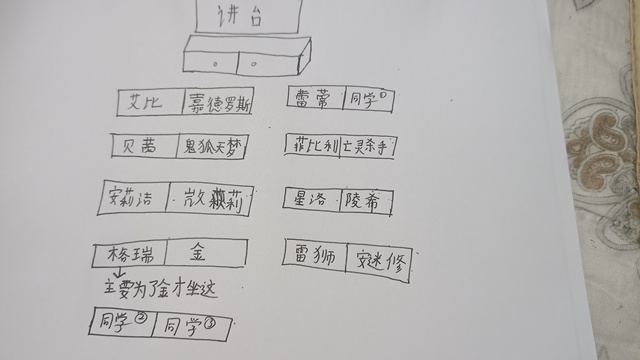 讲台
艾比 嘉德罗斯 雷蛰 同学①
贝茜 鬼狐天梦 菲比利 亡灵杀手
安莉洁 莉 星洛 陵希
格瑞 金 雷狮 安迷修
主要为了金才坐这
同学② 同学③